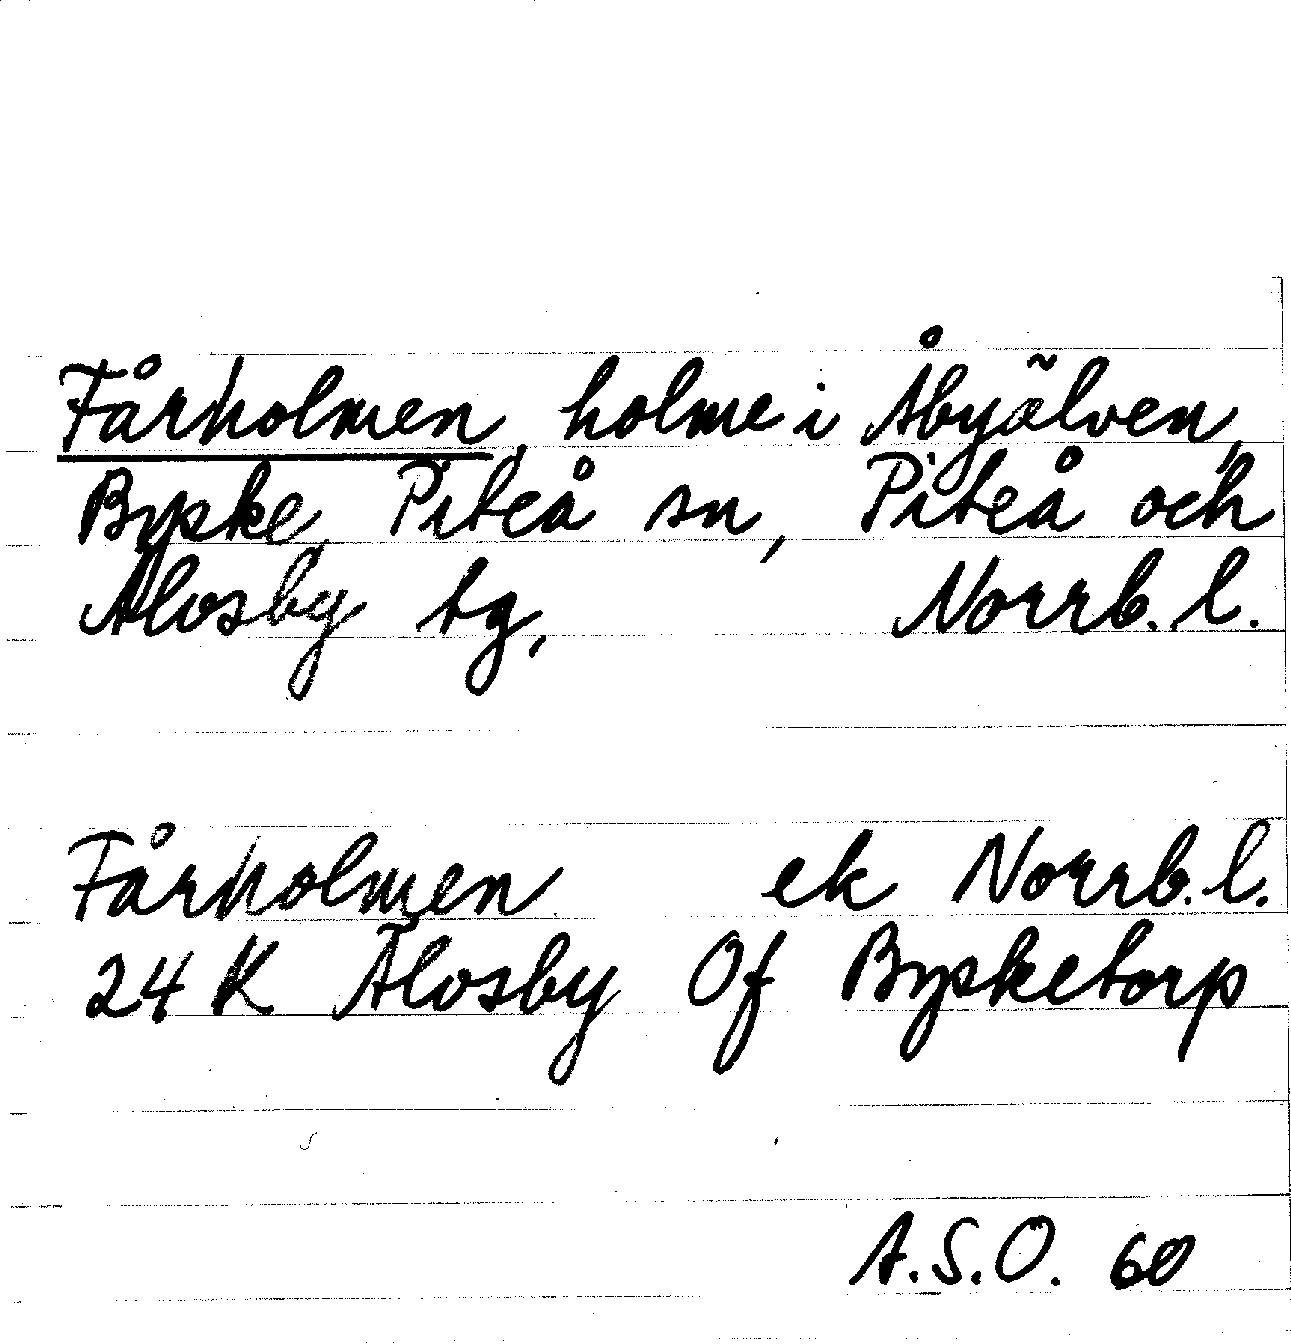 Fårholmen, holme i Åbyälven,
Byske, Piteå sn, Piteå och
Älvsby tg, Norrb. l.
Fårholmen ek Norrb. l.
24 K Älvsby Of Bysketorp
A.S.O. 60